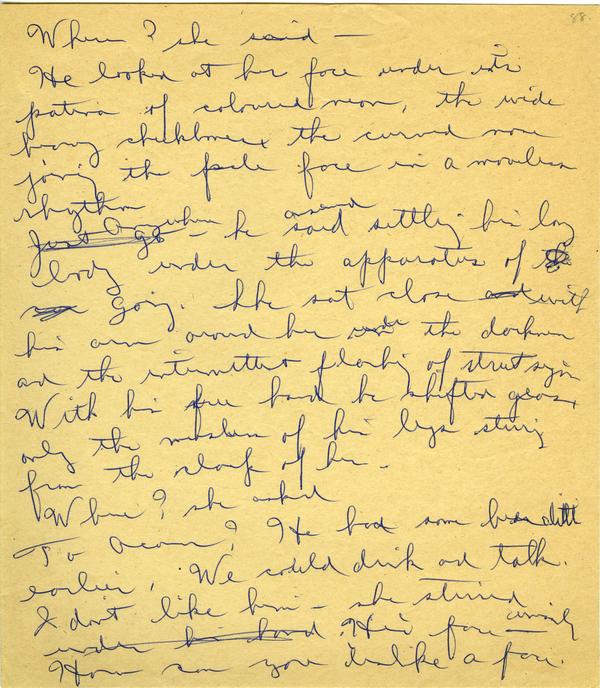 88.
Where? she said —
He looked at her face under its
patina of coloured neon, the wide
heavy cheekbones the curved nose
joining the pale face in a moveless
rhythm
Just Anywhere
go — he said settling his long
body under the apparatus of
going. She sat close and with
his arm around her under the darkness
and the intermittent flashing of street signs
With his free hand he shifted gears,
only the muscles of his legs stirring
from the slouch of her.
Where? she asked
To ? He had some
earlier. We could drink and talk.
I don't like him — she stirred
under his hand. His face —
How can you dislike a face.